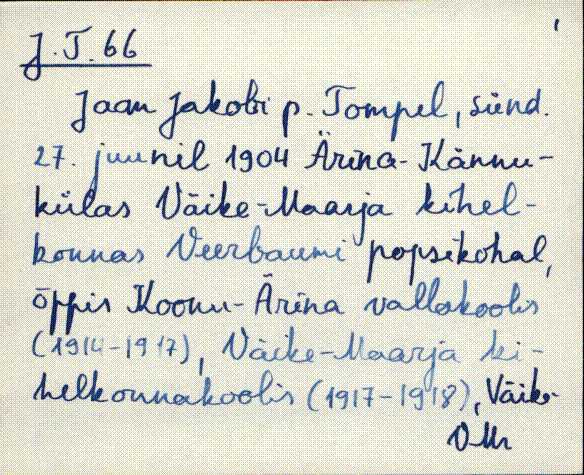 J. T. 66
Jaan Jakobi p. Tompel, sünd.
27. juunil 1904 Ärina-Kännu-
külas Väike-Maarja kihel-
konnas Veerbaumi popsikohal,
õppis Koonu-Ärina vallakoolis
(1914-1917), Väike-Maarja ki-
helkonnakoolis (1917-1918), Väike-